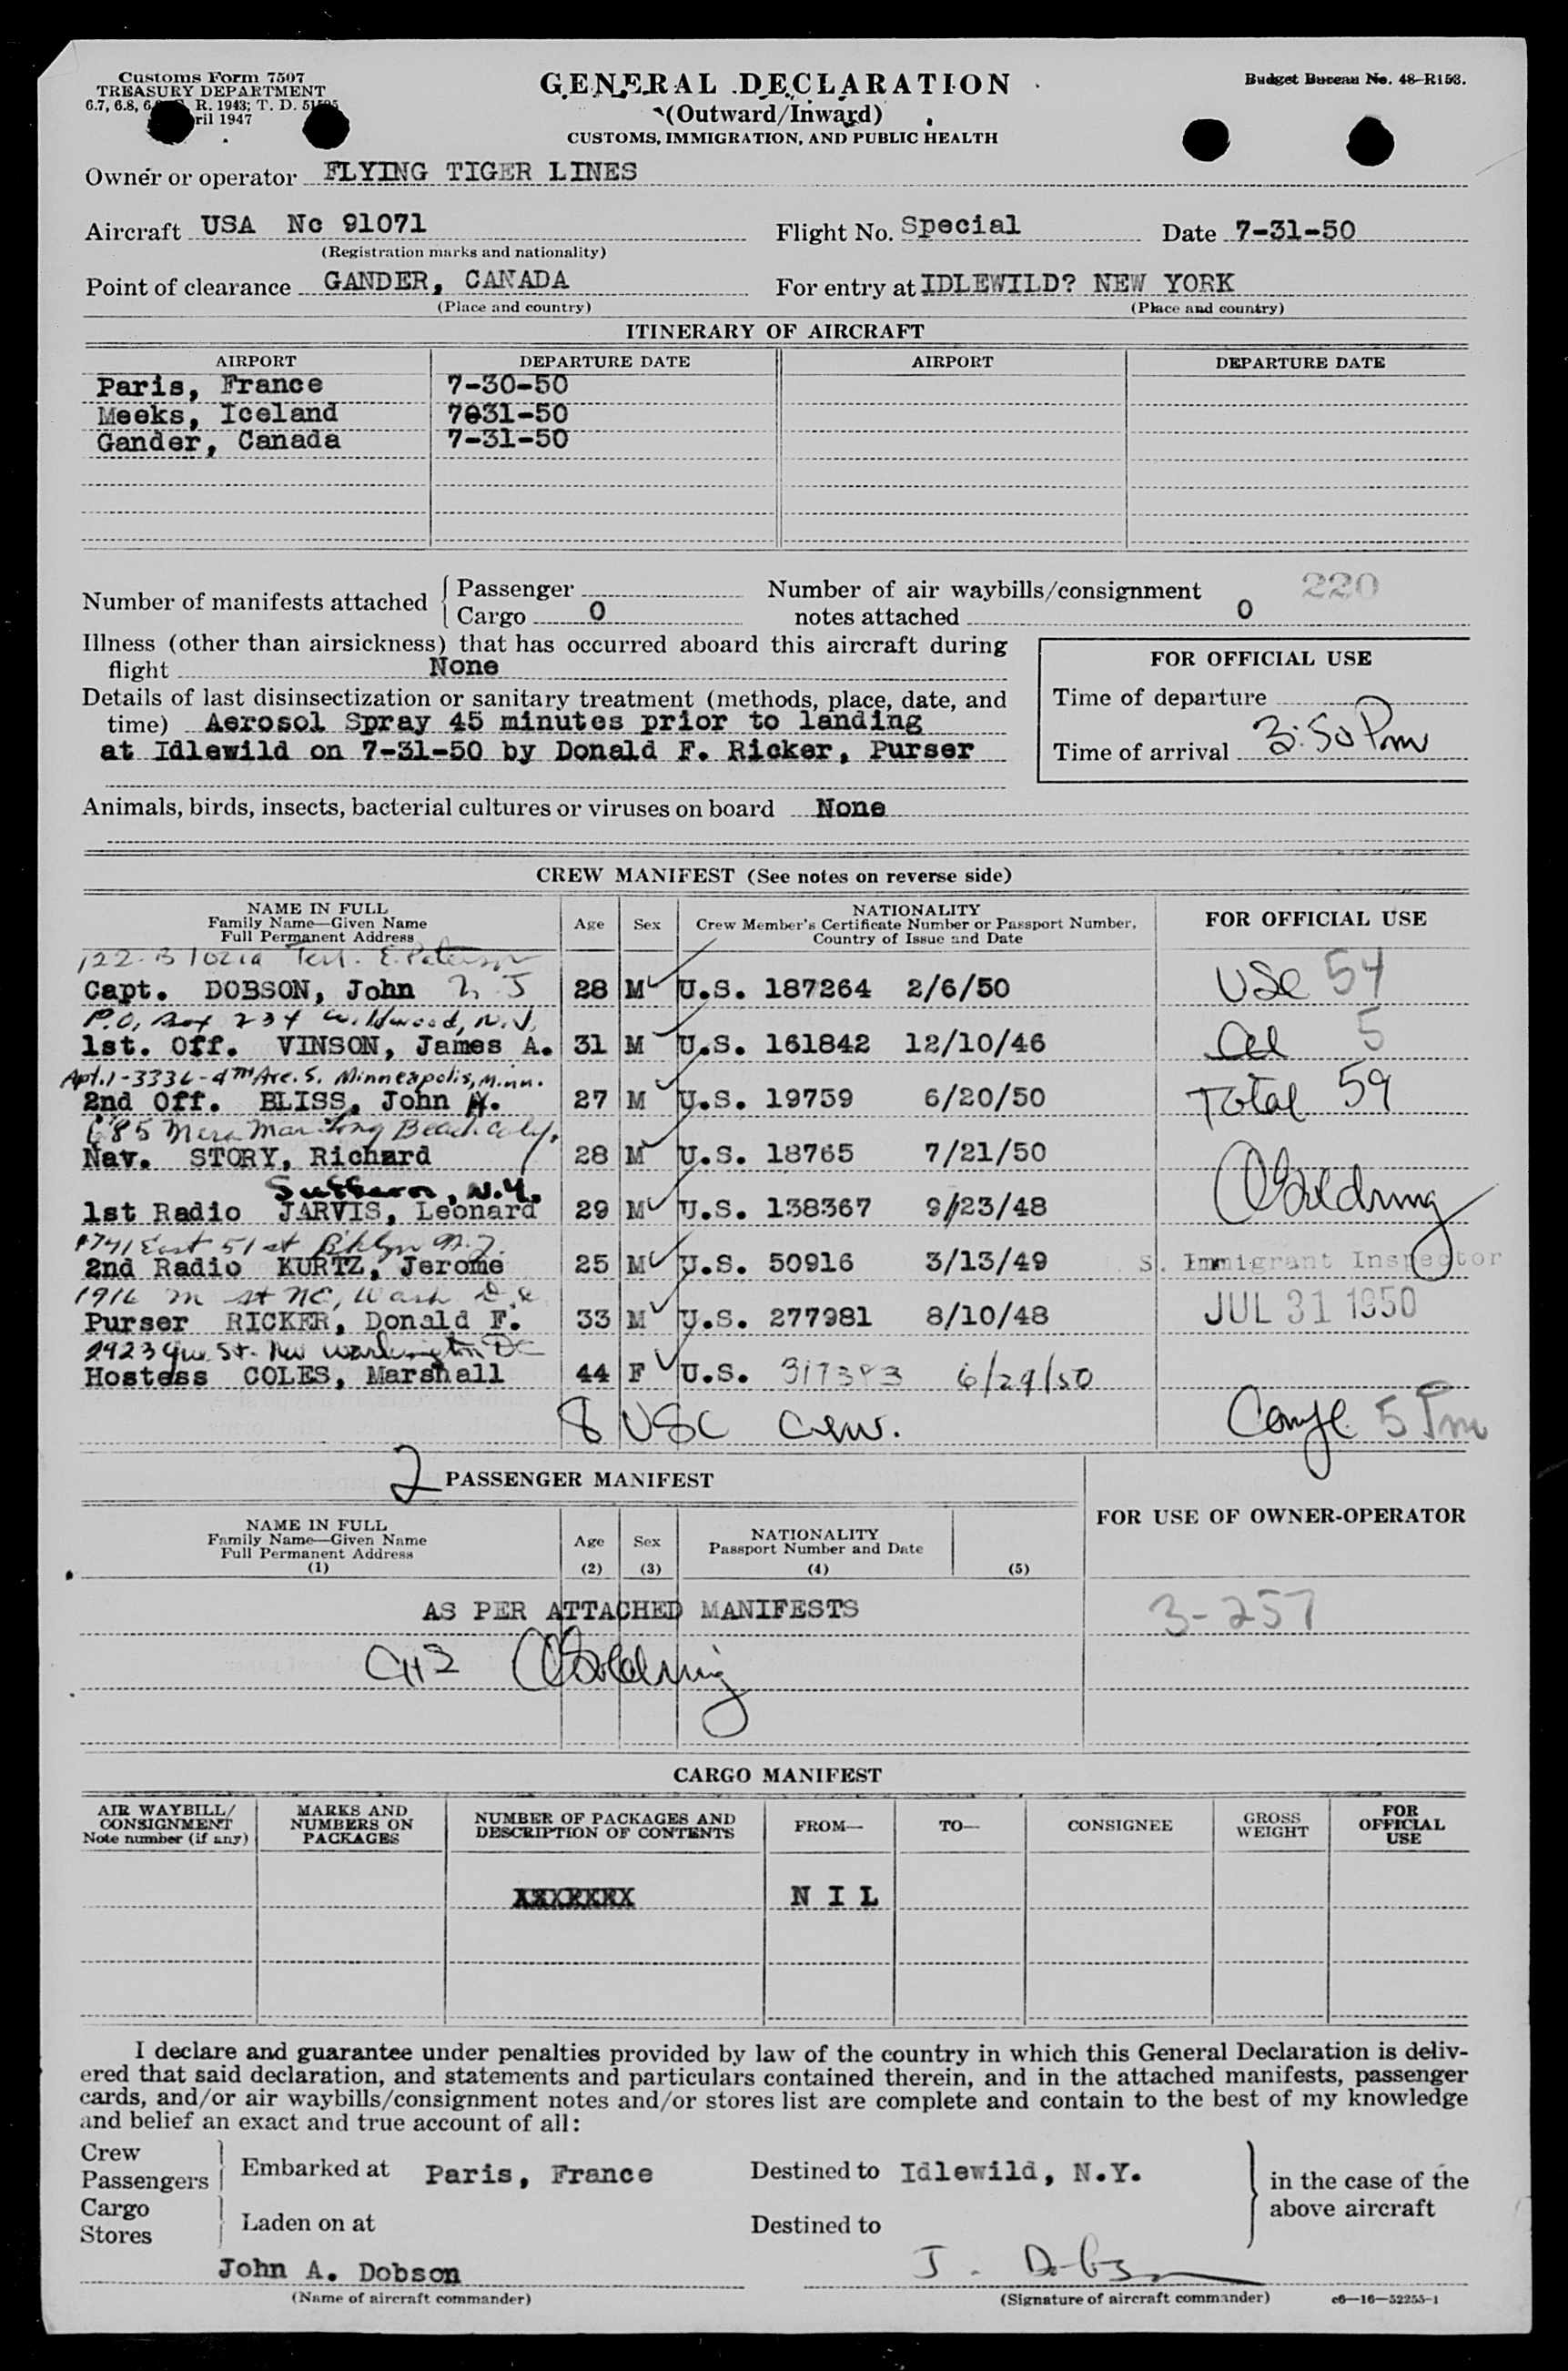 Customs Form 7507
TREASURY DEPARTMENT
6.7, 6.8, R. 1943; T. D.
ril 1947
GENERAL DECLARATION
(Outward/Inward)
CUSTOMS, IMMIGRATION, AND PUBLIC HEALTH
Budget Bureau No. 48-R158.
Owner or operator FLYING TIGER LINES
Aircraft USA Nc 91071 Flight No. Special Date 7-31-50
(Registration marks and nationality)
Point of clearance GANDER, CANADA For entry at IDLEWILD? NEW YORK
(Place and country) (Place and country)
ITINERARY OF AIRCRAFT
AIRPORT DEPARTURE DATE AIRPORT DEPARTURE DATE
Paris, France 7-30-50
Meeks, Iceland 7031-50
Gander, Canada 7-31-50
Number of manifests attached Passenger Number of air waybills/consignment 220
Cargo 0 notes attached 0
Illness (other than airsickness) that has occurred aboard this aircraft during
flight None
FOR OFFICIAL USE
Details of last disinsectization or sanitary treatment (methods, place, date, and
time) Aerosol Spray 45 minutes prior to landing
at Idlewild on 7-31-50 by Donald F. Ricker, Purser
Time of departure
Time of arrival 3:50 Pm
Animals, birds, insects, bacterial cultures or viruses on board None
CREW MANIFEST (See notes on reverse side)
NAME IN FULL
Family Name—Given Name
Full Permanent Address
Age Sex
NATIONALITY
Crew Member's Certificate Number or Passport Number,
Country of Issue and Date
FOR OFFICIAL USE
Capt. DOBSON, John N. J 28 M U.S. 187264 2/6/50 USC 54
P.O. Box 234 Wildwood, N.J.
1st. Off. VINSON, James A. 31 M U.S. 161842 12/10/46 5
Apt. 1-3336-4th Ave. S. Minneapolis, Minn.
2nd Off. BLISS, John 27 M U.S. 19759 6/20/50 Total 59
685 Mira Mar Long Beach Calif.
Nav. STORY, Richard 28 M U.S. 18765 7/21/50
Suffern, N.Y.
1st Radio JARVIS, Leonard 29 M U.S. 138367 9/23/48
East 51 st Bklyn N.Y.
2nd Radio KURTZ, Jerome 25 M U.S. 50916 3/13/49 S. Immigrant Inspector
1916 M St NE, Wash D.C.
Purser RICKER, Donald F. 33 M U.S. 277981 8/10/48 JUL 31 1950
2923 St. NW Washington DC
Hostess COLES, Marshall 44 F U.S. 317393 6/29/50
8 USC Crew. 5 Pm
2 PASSENGER MANIFEST
FOR USE OF OWNER-OPERATOR
NAME IN FULL
Family Name—Given Name
Full Permanent Address
(1)
Age
(2)
Sex
(3)
NATIONALITY
Passport Number and Date
(4) (5)
AS PER ATTACHED MANIFESTS 3-257
CARGO MANIFEST
AIR WAYBILL/
CONSIGNMENT
Note number (if any)
MARKS AND
NUMBERS ON
PACKAGES
NUMBER OF PACKAGES AND
DESCRIPTION OF CONTENTS
FROM— TO— CONSIGNEE
GROSS
WEIGHT
FOR
OFFICIAL
USE
N I L
I declare and guarantee under penalties provided by law of the country in which this General Declaration is deliv-
ered that said declaration, and statements and particulars contained therein, and in the attached manifests, passenger
cards, and/or air waybills/consignment notes and/or stores list are complete and contain to the best of my knowledge
and belief an exact and true account of all:
Crew
Passengers Embarked at Paris, France Destined to Idlewild, N.Y. in the case of the
Cargo above aircraft
Stores Laden on at Destined to
John A. Dobson J. Dobson
(Name of aircraft commander) (Signature of aircraft commander) c6—16—52255-1